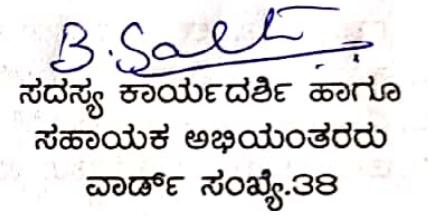 ಸದಸ್ಯ ಕಾರ್ಯದರ್ಶಿ ಹಾಗೂ
ಸಹಾಯಕ ಅಭಿಯಂತರರು
ವಾರ್ಡ್ ಸಂಖ್ಯೆ.38